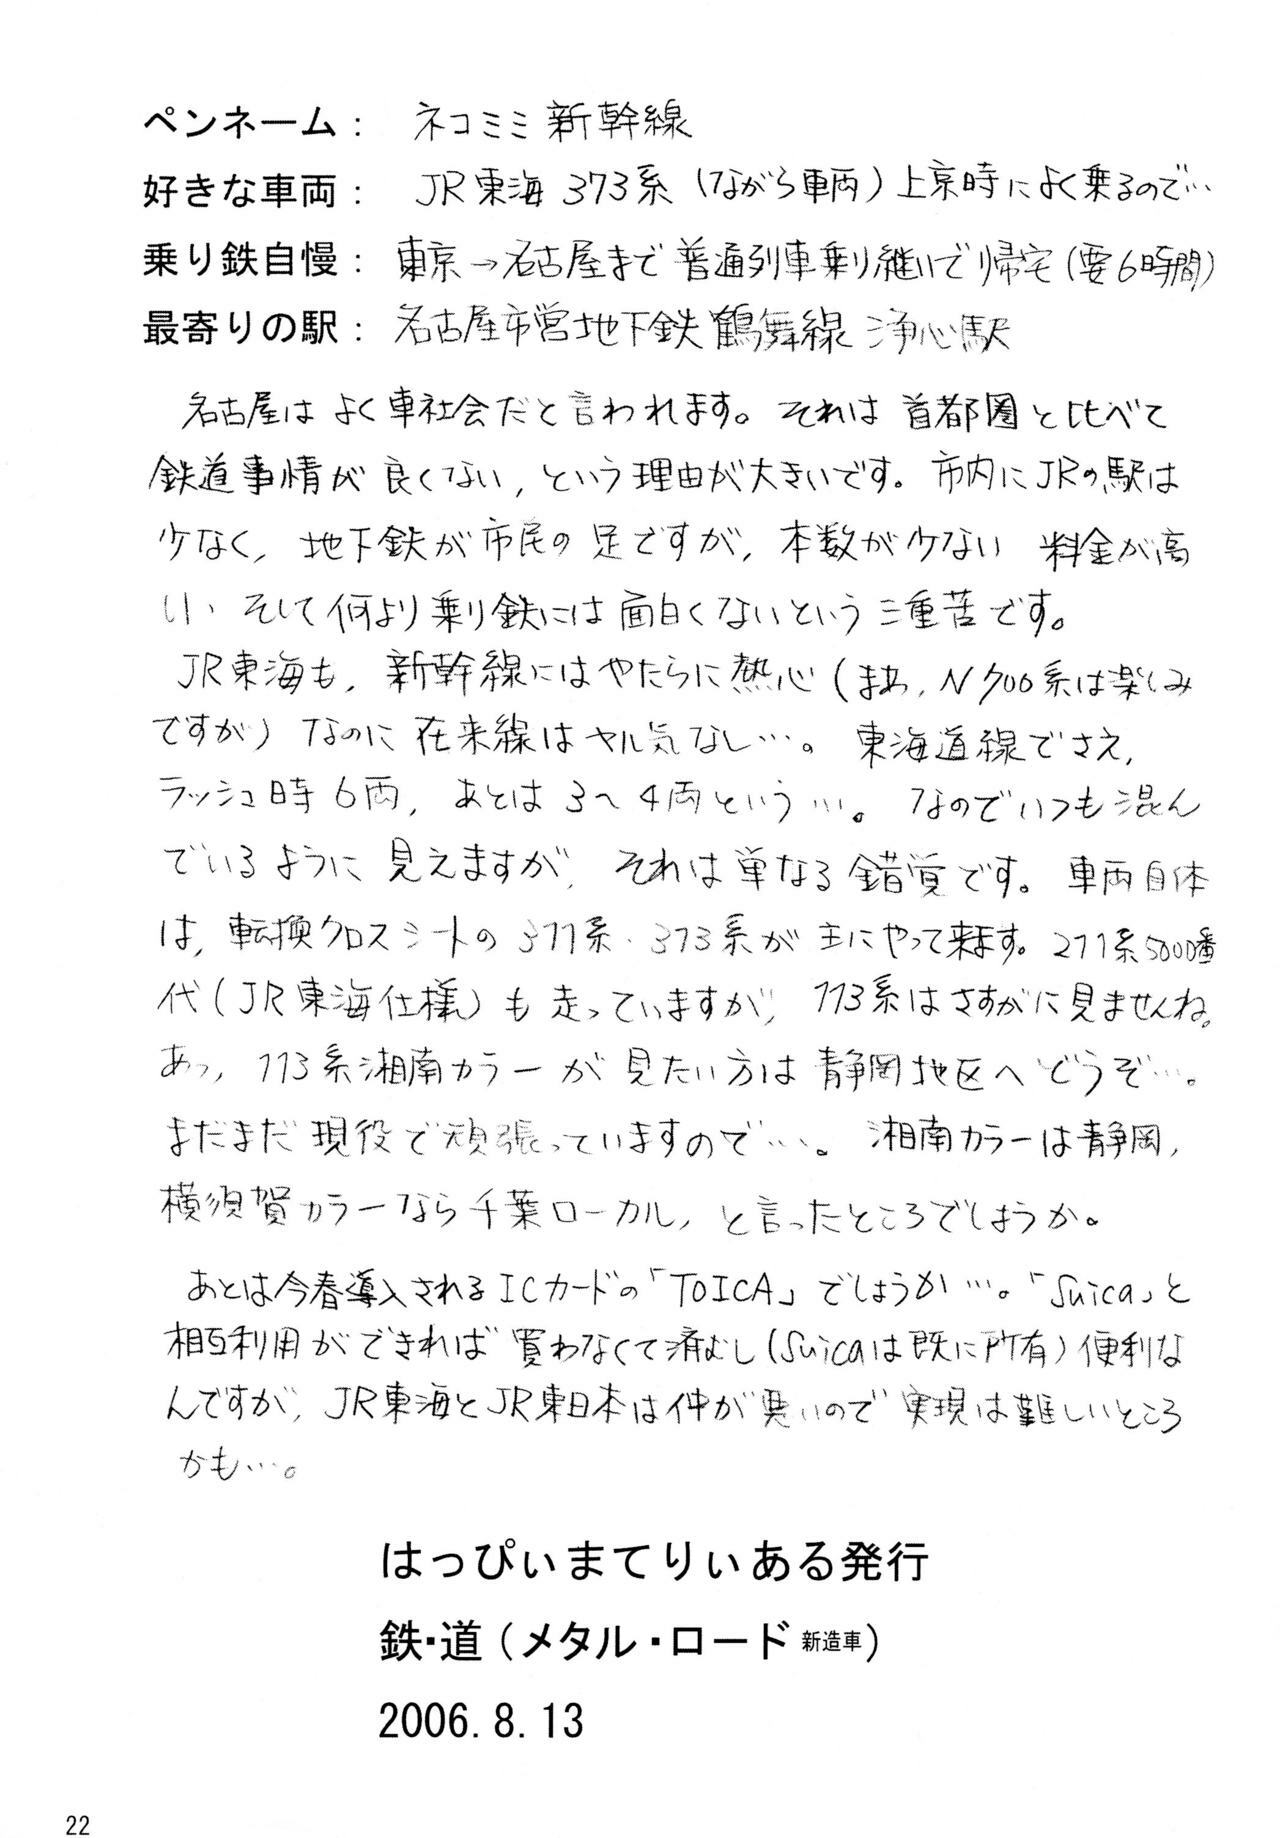 ペンネーム： ネコミミ新幹線
好きな車両： JR東海 373系（ながら車両）上京時によく乗るので…
乗り鉄自慢： 東京→名古屋まで普通列車乗り継いで帰宅（要6時間）
最寄りの駅： 名古屋市営地下鉄 鶴舞線 浄心駅
名古屋は よく車社会だと言われます。それは 首都圏と比べて
鉄道事情が良くない, という理由が大きいです。市内にJRの駅は
少なく, 地下鉄が市民の足ですが, 本数が少ない 料金が高
い そして何より乗り鉄には面白くないという 三重苦です。
JR東海も, 新幹線にはやたらに熱心（まぁ, N700系は楽しみ
ですが）なのに在来線はヤル気なし…。 東海道線でさえ,
ラッシュ時6両, あとは3〜4両という…。なのでいつも混ん
でいるように見えますが, それは単なる錯覚です。車両自体
は, 転換クロスシートの311系・313系が主にやって来ます。211系5000番
代（JR東海仕様）も走っていますが, 113系はさすがに見ませんね。
あっ, 113系湘南カラーが見たい方は静岡地区へどうぞ…。
まだまだ現役で頑張っていますので…。 湘南カラーは静岡,
横須賀カラーなら千葉ローカル, と言ったところでしょうか。
あとは今春導入されるICカードの「TOICA」でしょうか…。「Suica」と
相互利用ができれば買わなくて済むし（Suicaは既に所有）便利な
んですが, JR東海とJR東日本は仲が悪いので実現は難しいところ
かも…。
はっぴぃまてりぃある発行
鉄・道（メタル・ロード 新造車）
2006.8.13
22